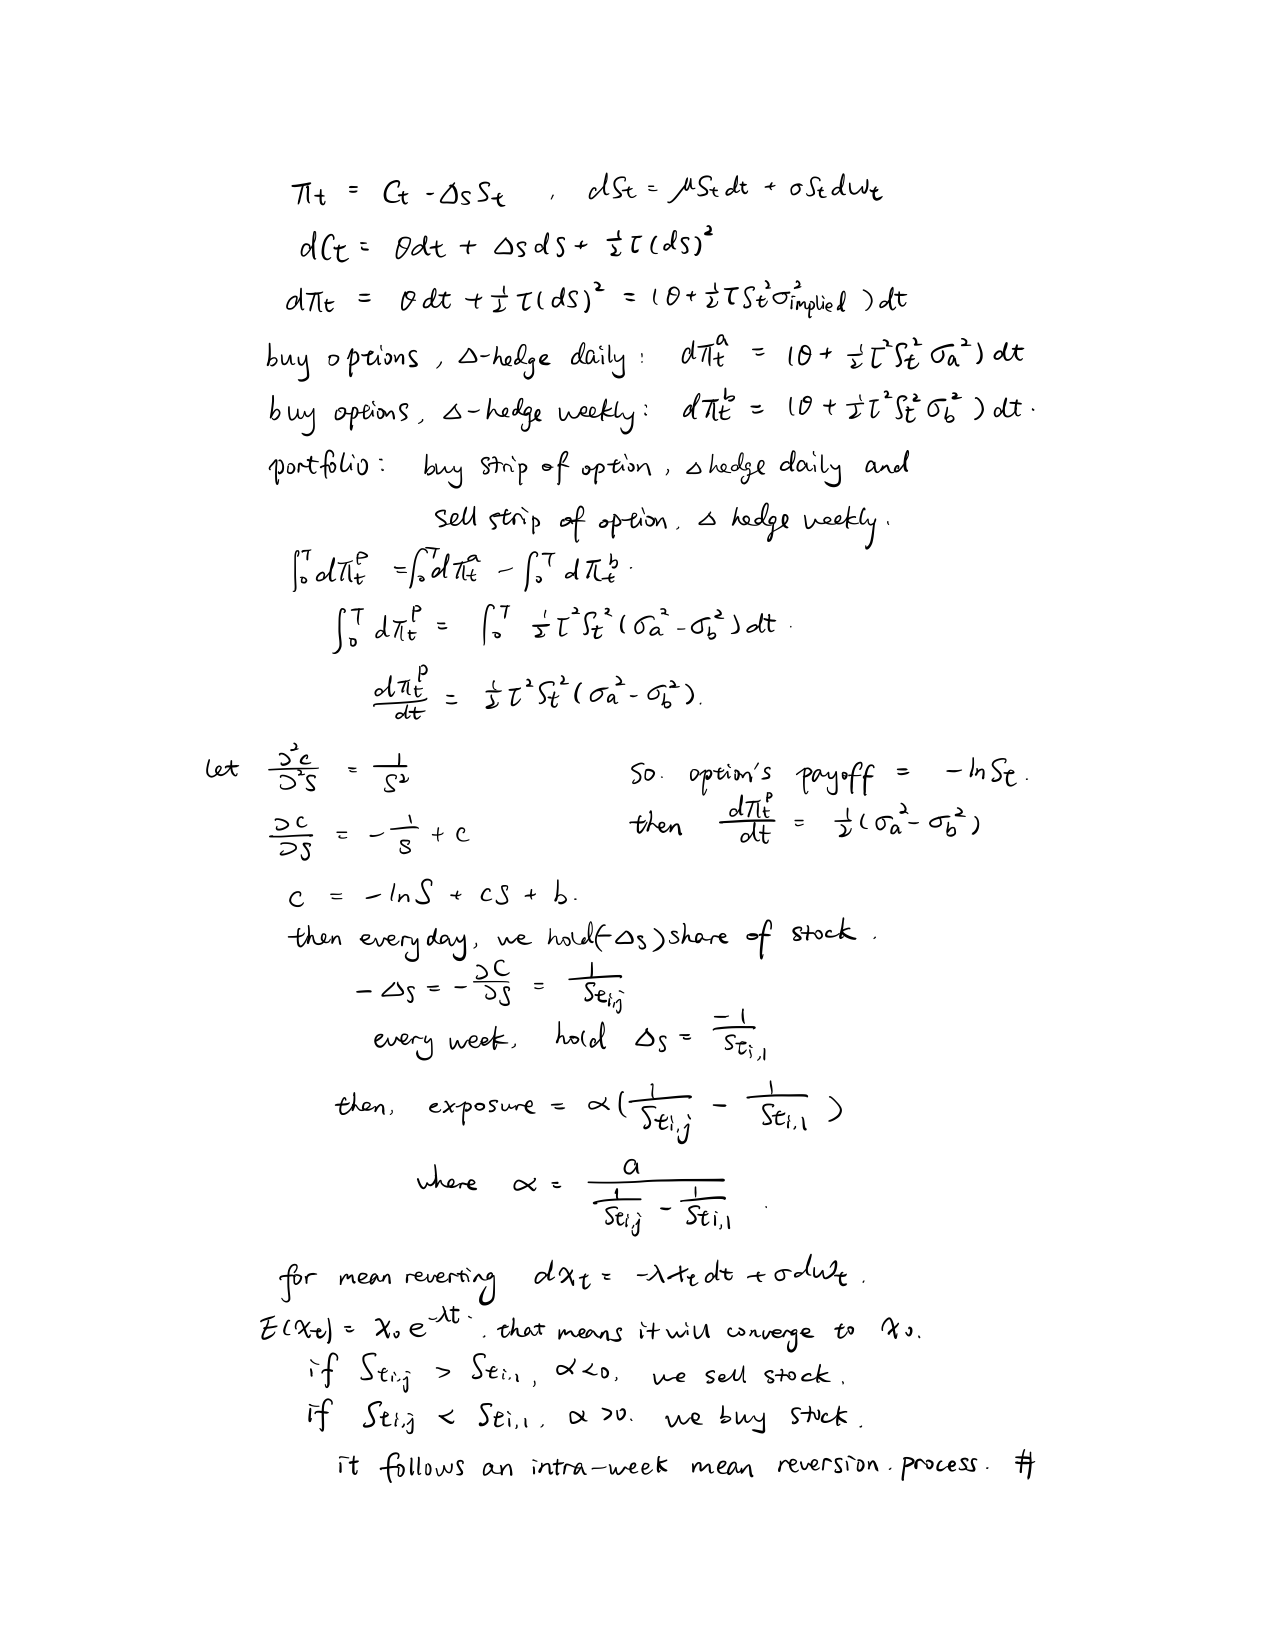 πt = Ct - ΔsSt , dSt = μStdt + σStdWt
dCt = θdt + ΔsdS + ½τ(dS)²
dπt = θdt + ½τ(dS)² = (θ + ½τSt²σ²implied)dt
buy options, Δ-hedge daily: dπt^a = (θ + ½τ²St²σa²)dt
buy options, Δ-hedge weekly: dπt^b = (θ + ½τ²St²σb²)dt.
portfolio: buy strip of option, Δ hedge daily and
sell strip of option, Δ hedge weekly.
∫₀ᵀ dπt^p = ∫₀ᵀ dπt^a - ∫₀ᵀ dπt^b.
∫₀ᵀ dπt^p = ∫₀ᵀ ½τ²St²(σa² - σb²)dt.
dπt^p/dt = ½τ²St²(σa² - σb²).
let ∂²c/∂²S = 1/S² So. option's payoff = -lnSt.
∂C/∂S = -1/S + c then dπt^p/dt = ½(σa² - σb²)
c = -lnS + cS + b.
then everyday, we hold(-Δs) share of stock.
-Δs = -∂C/∂S = 1/St_{i,j}
every week, hold Δs = -1/St_{i,1}
then, exposure = α(1/St_{i,j} - 1/St_{i,1})
where α = a/(1/St_{i,j} - 1/St_{i,1}).
for mean reverting dxt = -λxtdt + σdWt.
E(xt) = x₀e^{-λt}. that means it will converge to x₀.
if St_{i,j} > St_{i,1}, α<0, we sell stock.
if St_{i,j} < St_{i,1}, α>0. we buy stock.
it follows an intra-week mean reversion. process. #